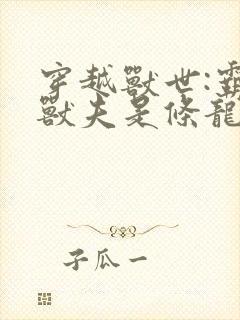 穿越獸世:霸
獸夫是條龍
子瓜一